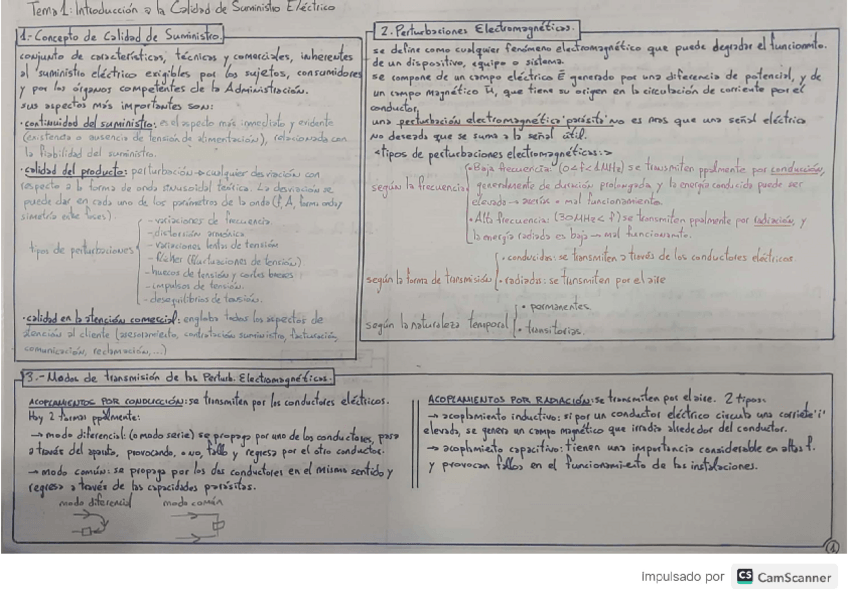 Tema 1: Introducción a la Calidad de Suministro Eléctrico
1.- Concepto de Calidad de Suministro.
conjunto de características, técnicas y comerciales, inherentes
al suministro eléctrico exigibles por los sujetos, consumidores
y por los órganos competentes de la Administración.
sus aspectos más importantes son:
· continuidad del suministro: es el aspecto más inmediato y evidente
(existencia o ausencia de tensión de alimentación), relacionada con
la fiabilidad del suministro.
· calidad del producto: perturbación → cualquier desviación con
respecto a la forma de onda sinusoidal teórica. La desviación se
puede dar en cada uno de los parámetros de la onda (f, A, forma onda y
simetría entre fases).
tipos de perturbaciones
- variaciones de frecuencia.
- distorsión armónica
- variaciones lentas de tensión
- flicker (fluctuaciones de tensión)
- huecos de tensión y cortes breves
- impulsos de tensión.
- desequilibrios de tensión.
· calidad en la atención comercial: engloba todos los aspectos de
atención al cliente (asesoramiento, contratación suministro, facturación,
comunicación, reclamación,...)
2. Perturbaciones Electromagnéticas.
se define como cualquier fenómeno electromagnético que puede degradar el funcionmto.
de un dispositivo, equipo o sistema.
se compone de un campo eléctrico E generado por una diferencia de potencial, y de
un campo magnético H, que tiene su origen en la circulación de corriente por el
conductor.
una perturbación electromagnética 'parásita' no es más que una señal eléctrica
no deseada que se suma a la señal útil.
<tipos de perturbaciones electromagnéticas:>
según la frecuencia
· Baja frecuencia: (0≤f<1MHz) se transmiten ppalmente por conducción,
generalmente de duración prolongada y la energía conducida puede ser
elevada → avería o mal funcionamiento.
· Alta frecuencia: (30MHz<f) se transmiten ppalmente por radiación, y
la energía radiada es baja → mal funcionamto.
según la forma de transmisión
· conducidas: se transmiten a través de los conductores eléctricos
· radiadas: se transmiten por el aire
según la naturaleza temporal
· permanentes
· transitorias.
3.- Modos de transmisión de las Perturb. Electromagnéticas.
ACOPLAMIENTOS POR CONDUCCIÓN: se transmiten por los conductores eléctricos.
Hay 2 formas ppalmente:
→ modo diferencial: (o modo serie) se propaga por uno de los conductores, pasa
a través del aparato, provocando, o no, fallo y regresa por el otro conductor.
→ modo común: se propaga por los dos conductores en el mismo sentido y
regresa a través de las capacidades parásitas.
modo diferencial modo común
ACOPLAMIENTOS POR RADIACIÓN: se transmiten por el aire. 2 tipos:
→ acoplamiento inductivo: si por un conductor eléctrico circula una corriente 'i'
elevada, se genera un campo magnético que irradia alrededor del conductor.
→ acoplamiento capacitivo: tienen una importancia considerable en altas f.
y provocan fallos en el funcionamiento de las instalaciones.
1
Impulsado por CS CamScanner